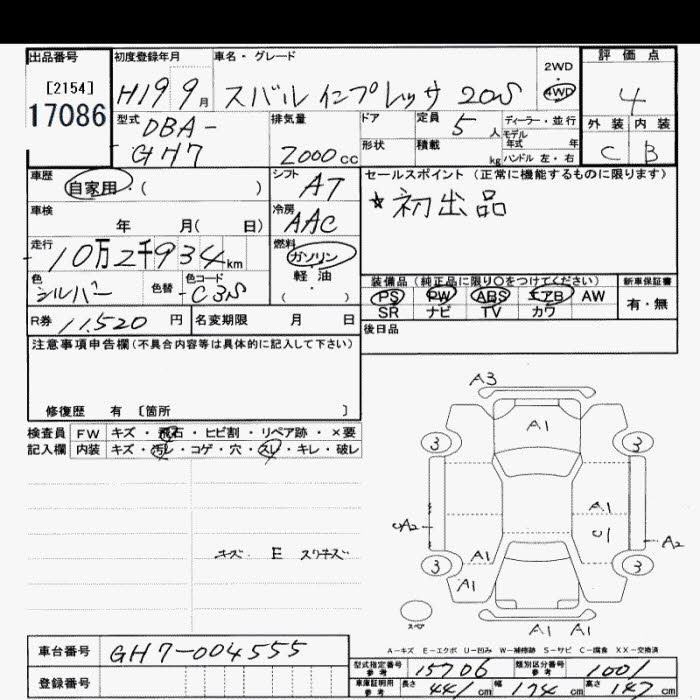 出品番号 初度登録年月 車名・グレード 評価点
[2154] 17086 H19 9月 スバル インプレッサ 20S 2WD・4WD 4
型式 DBA-GH7 排気量 2000cc ドア 定員 5人 ディーラー・並行 外装 内装
形状 積載 kg モデル年式 年 ハンドル 左・右 C B
車歴 自家用・( ) シフト AT セールスポイント(正常に機能するものに限ります)
車検 年 月( 日) 冷房 AAC ★初出品
走行 10万2千934km 燃料 ガソリン 軽油 ( )
色 シルバー 色替 色コード C3S
装備品(純正品に限り○をつけてください) 新車保証書
PS PW ABS エアB AW 有・無
SR ナビ TV カワ
R券 11,520円 名変期限 月 日 後日品
注意事項申告欄(不具合内容等は具体的に記入して下さい)
修復歴 有 〔箇所 〕
検査員 FW キズ・飛石・ヒビ割・リペア跡・×要
記入欄 内装 キズ・汚レ・コゲ・穴・スレ・キレ・破レ
キズ・E スリキズ
A3
A1
3 3
A1
A2 U1 A2
3 A1 3
A1
スペア A1 A1
A-キズ E-エクボ U-凹み W-補修跡 S-サビ C-腐食 XX-交換済
車台番号 GH7-004555
型式指定番号 参考 15706 類別区分番号 参考 1001
登録番号 車庫証明用 参考 長さ 441cm 幅 174cm 高さ 147cm